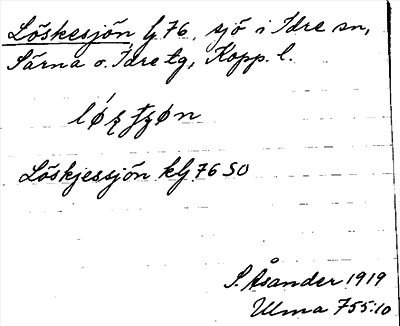 Löskesjön G 76, sjö i Idre sn,
Särna o. Idre tg, Kopp. l.
Löskjessjön kG 76 SO
S. Åsander 1919
Ulma 755:10